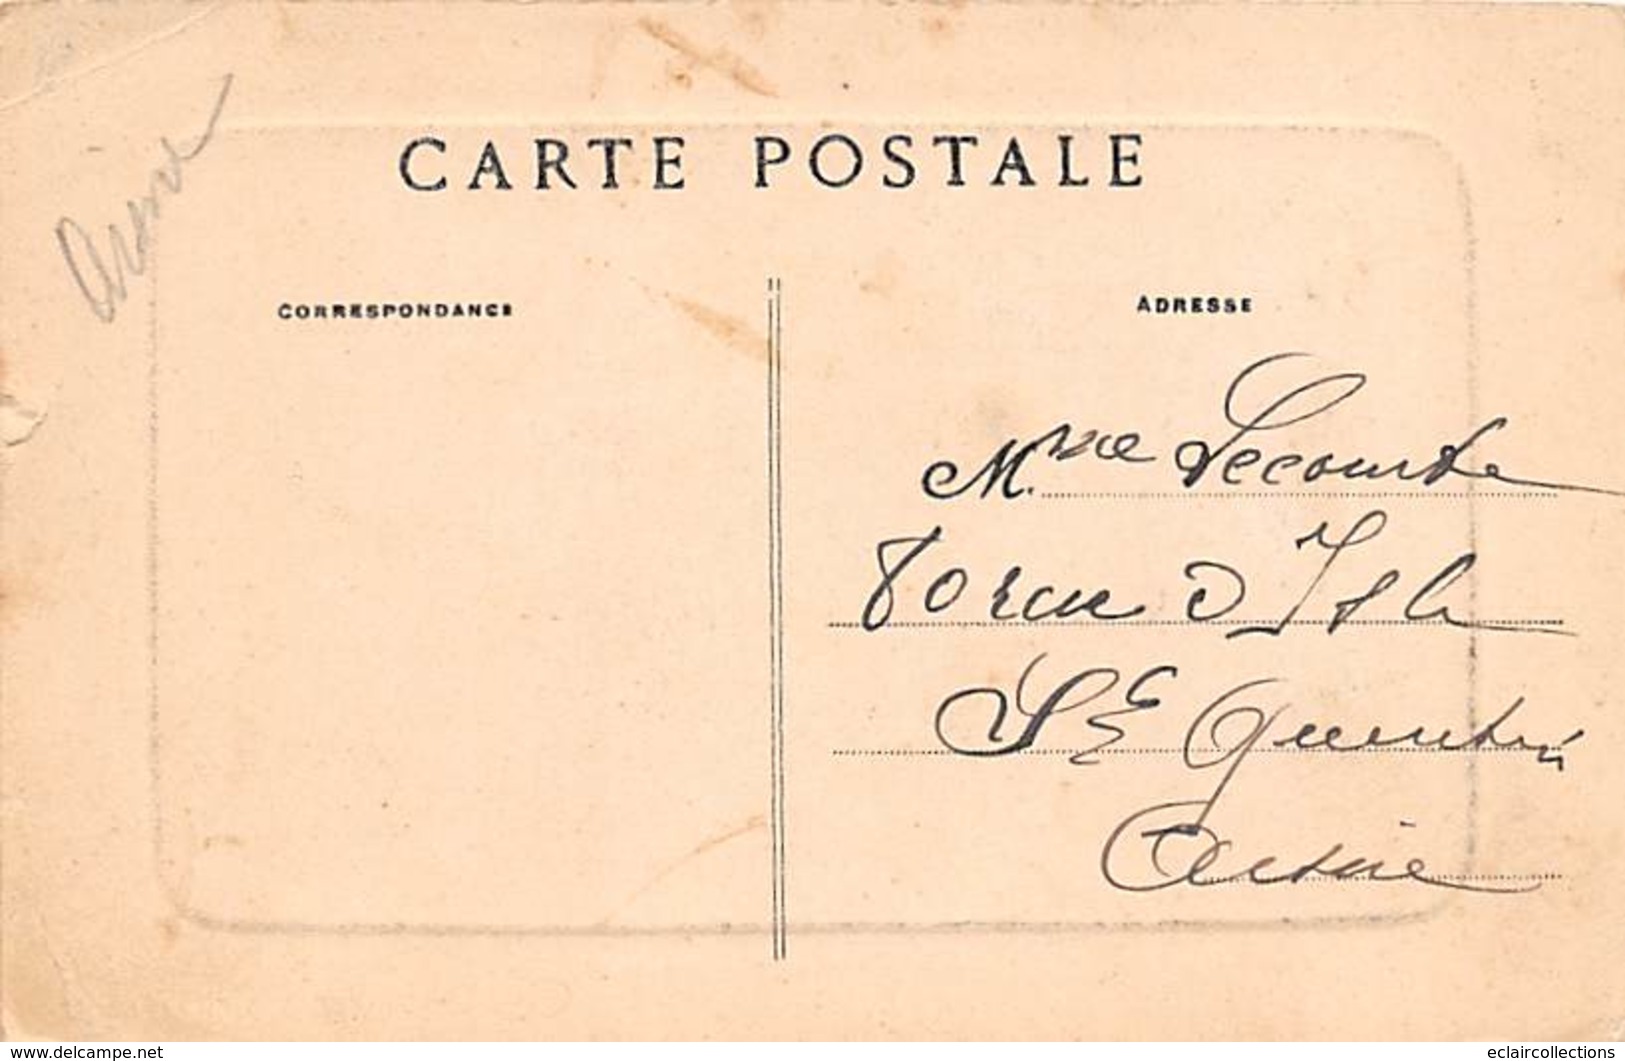 CARTE POSTALE
Aisne
CORRESPONDANCE
ADRESSE
Mme Lecomte
70 rue d Isle
St Quentin
Aisne
www.delcampe.net
eclaircollections